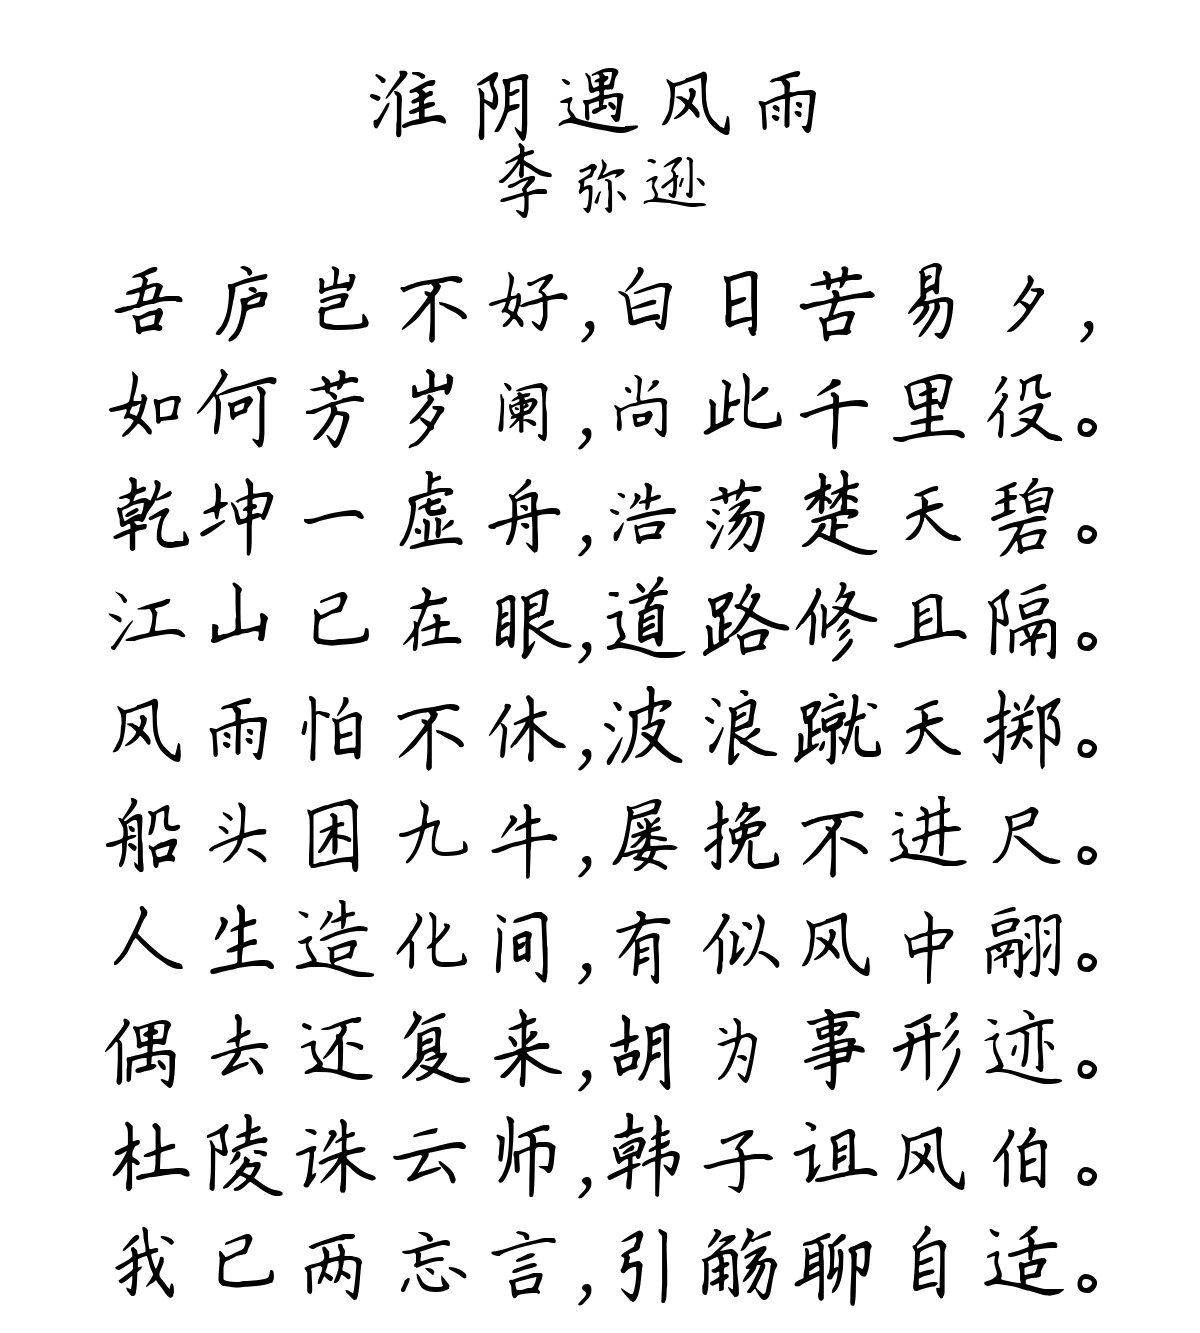 淮阴遇风雨
李弥逊
吾庐岂不好,白日苦易夕,
如何芳岁阑,尚此千里役。
乾坤一虚舟,浩荡楚天碧。
江山已在眼,道路修且隔。
风雨怕不休,波浪蹴天掷。
船头困九牛,屡挽不进尺。
人生造化间,有似风中翮。
偶去还复来,胡为事形迹。
杜陵诛云师,韩子诅风伯。
我已两忘言,引觞聊自适。